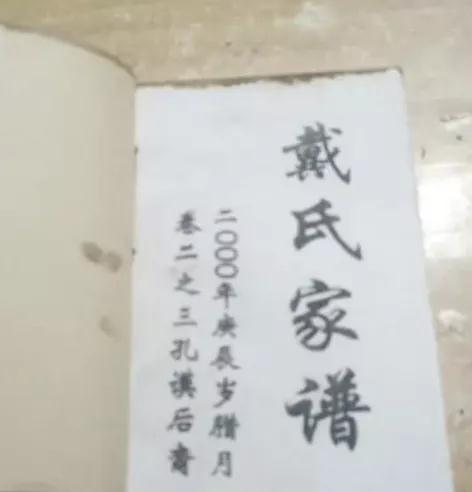 戴氏家谱
二〇〇〇年庚辰岁腊月
卷二之三孔谟后裔